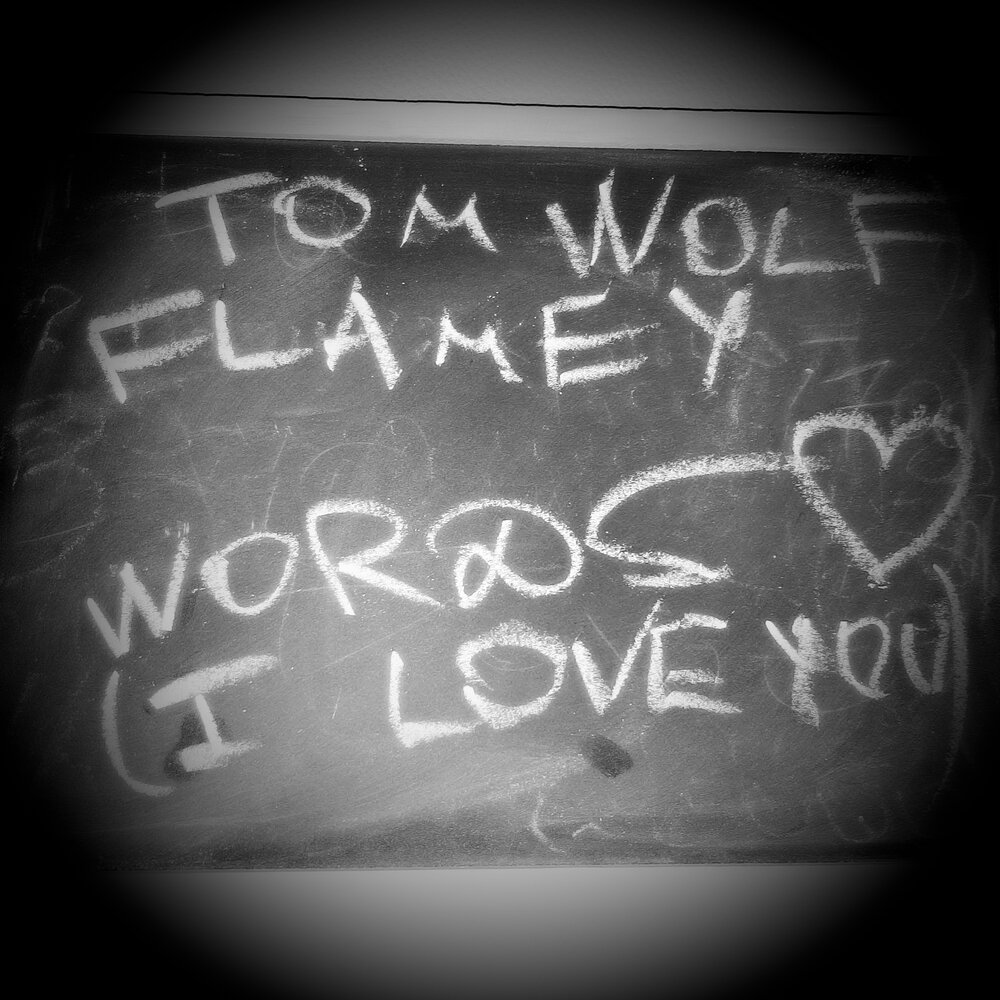 TOM WOLF
FLAMEY
WORDS
(I LOVE YOU)